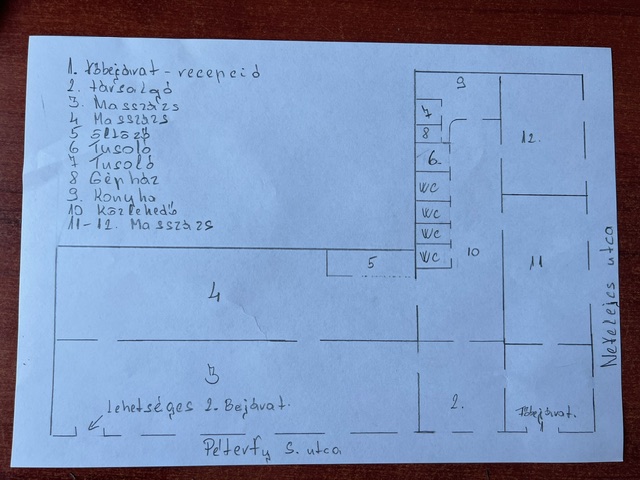 1. Főbejárat - recepció
2. társalgó
3. Masszázs
4 Masszázs
5 öltöző
6 Tusoló
7 Tusoló
8 Gépház
9. Konyha
10 Közlekedő
11-12. Masszázs
9
7
8
12.
6.
WC
WC
WC
WC
10
11
5
4
3
Lehetséges 2. Bejárat.
2.
Főbejárat.
Péterfy S. utca
Nefelejcs utca